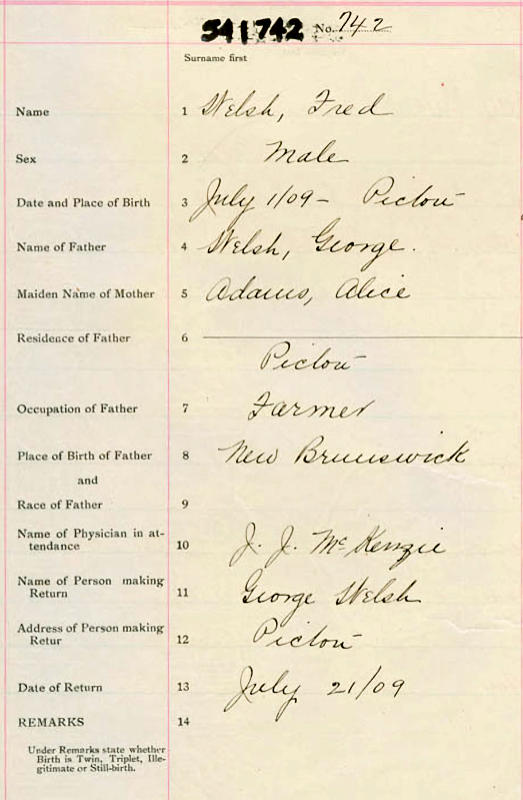 541742 No. 742
Surname first
Name 1 Welsh, Fred
Sex 2 Male
Date and Place of Birth 3 July 1/09 - Pictou
Name of Father 4 Welsh, George.
Maiden Name of Mother 5 Adams, Alice
Residence of Father 6
Pictou
Occupation of Father 7 Farmer
Place of Birth of Father 8 New Brunswick
and
Race of Father 9
Name of Physician in at-
tendance 10 J. J. McKenzie
Name of Person making
Return 11 George Welsh
Address of Person making
Retur 12 Pictou
Date of Return 13 July 21/09
REMARKS 14
Under Remarks state whether
Birth is Twin, Triplet, Ille-
gitimate or Still-birth.